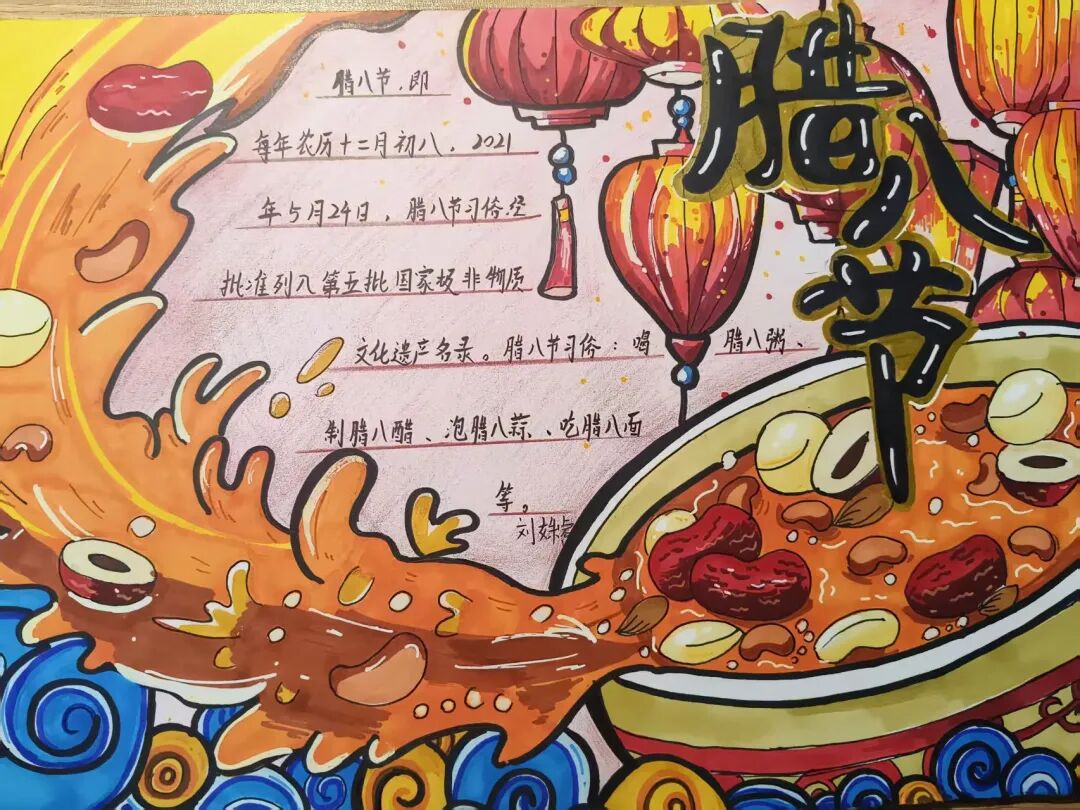 腊八节
腊八节，即
每年农历十二月初八，2021
年5月24日，腊八节习俗经
批准列入第五批国家级非物质
文化遗产名录。腊八节习俗：喝腊八粥、
制腊八醋、泡腊八蒜、吃腊八面
等。
刘姝